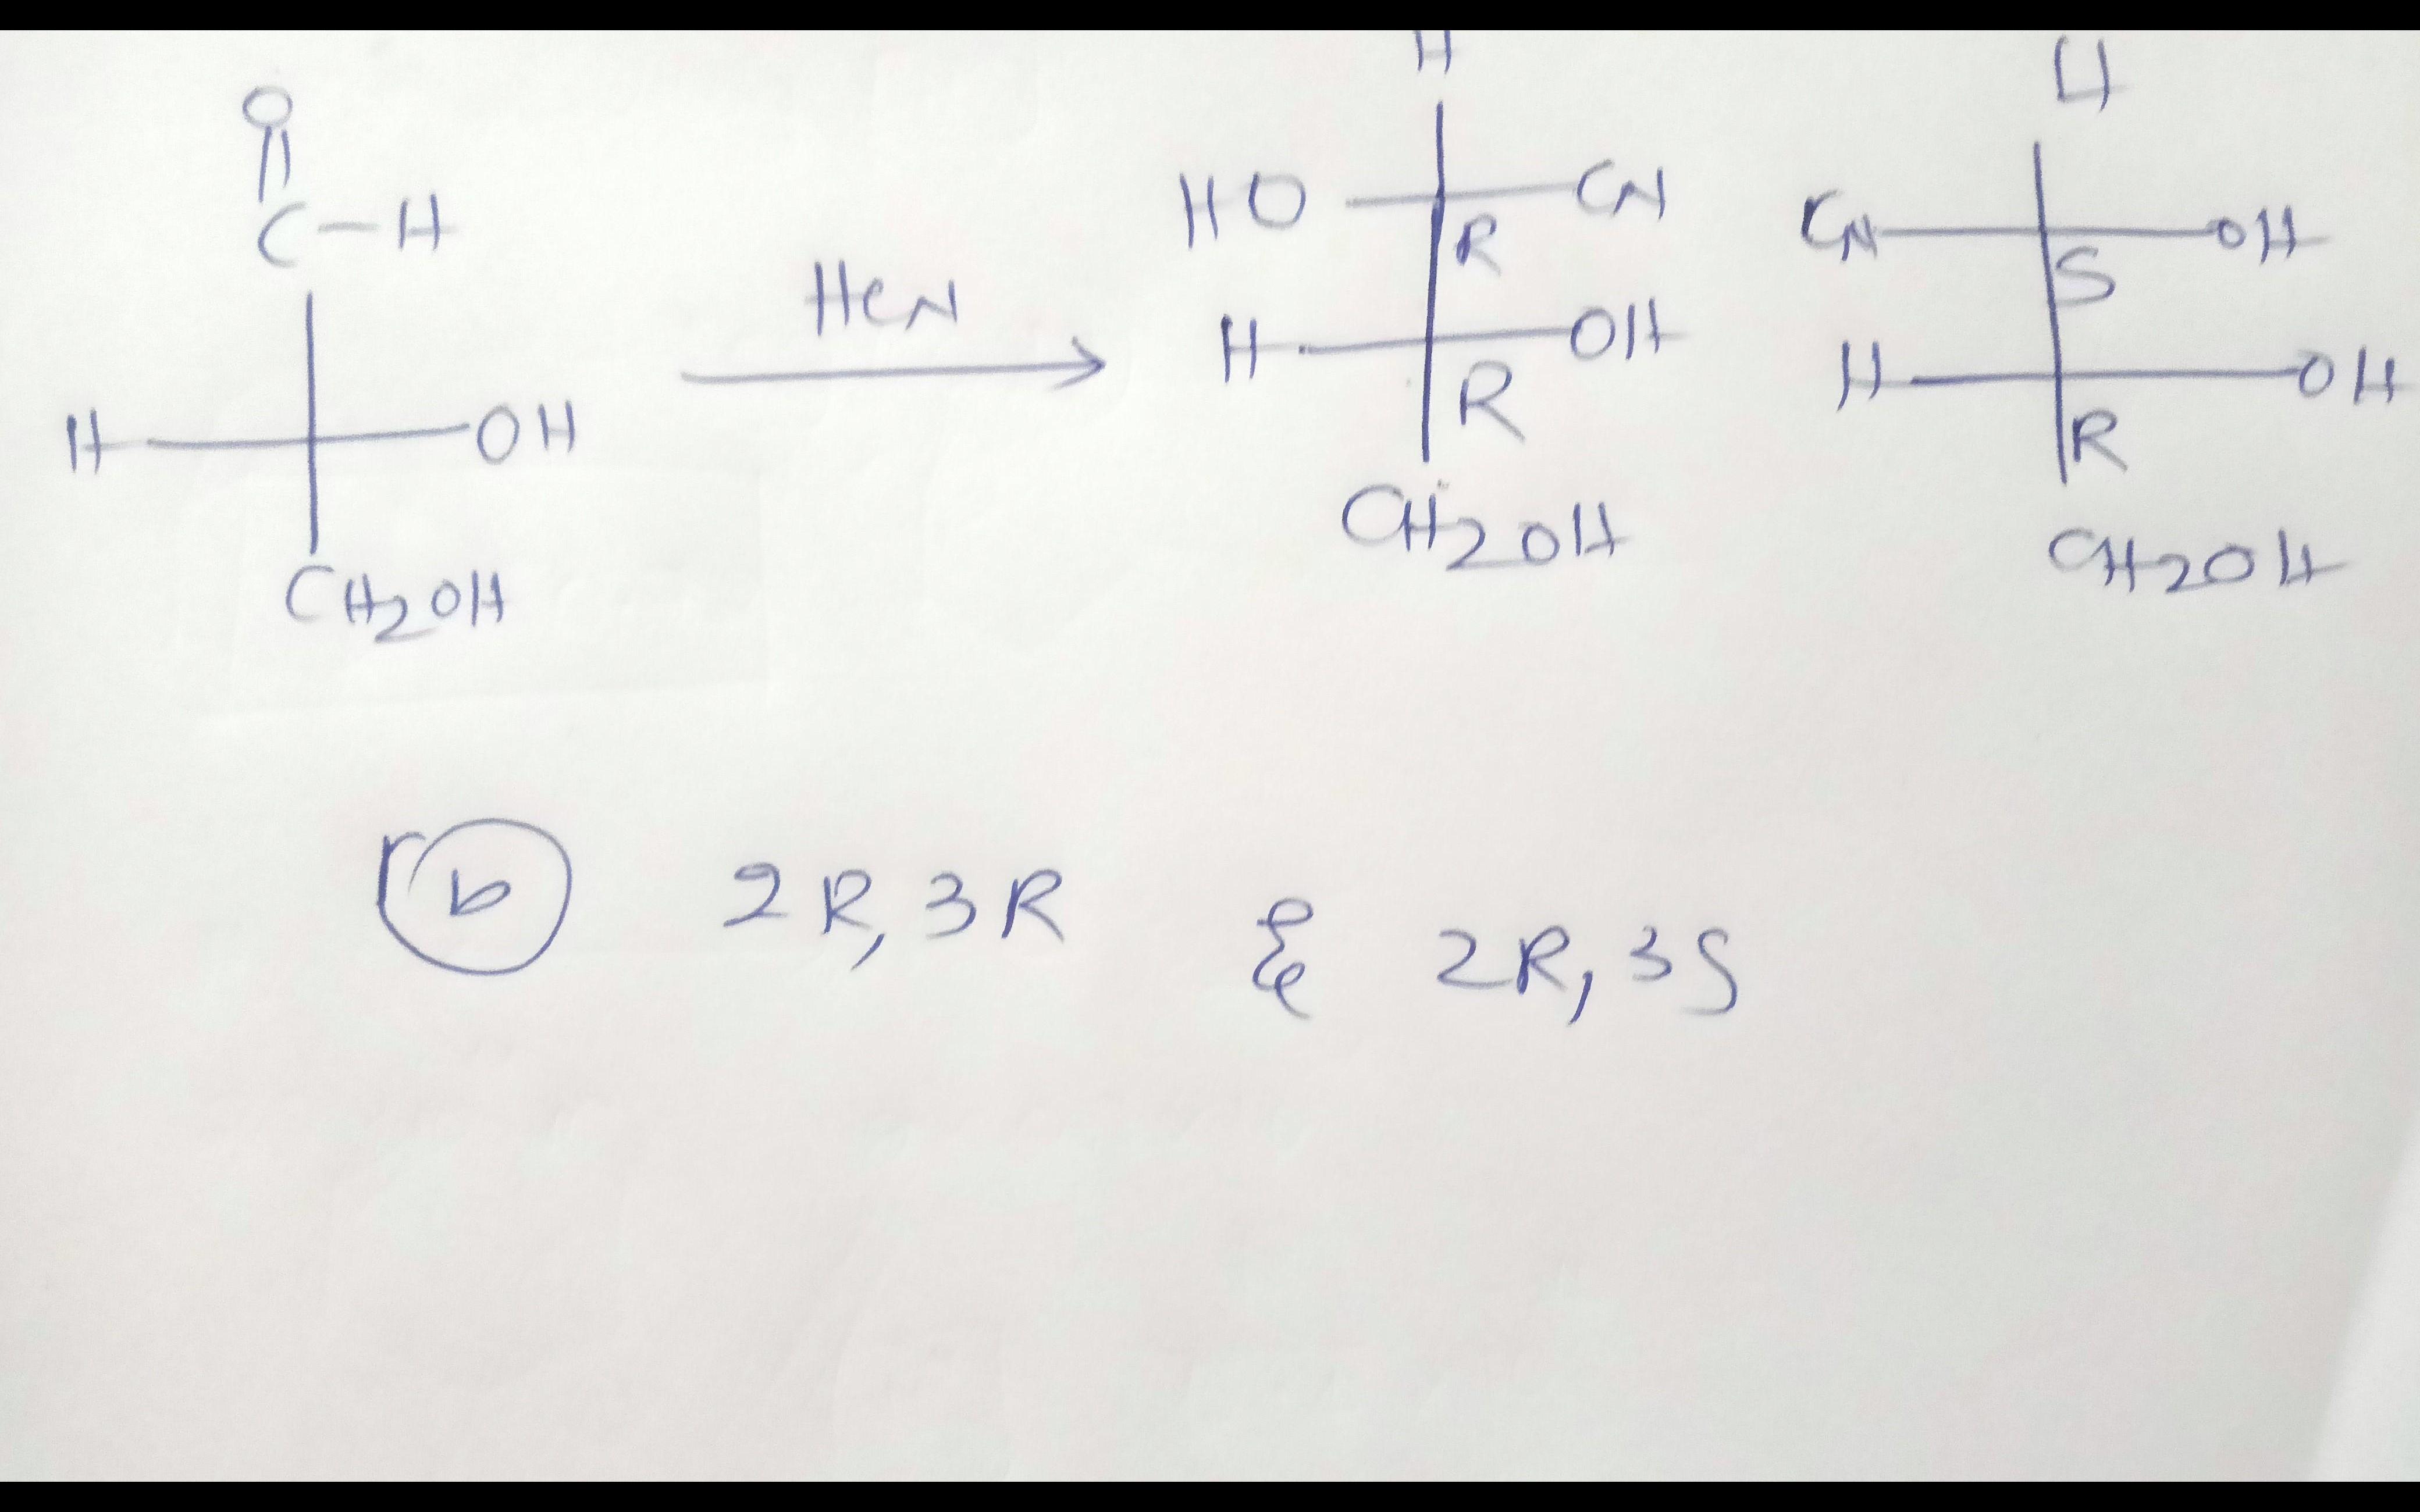 O
C-H
H OH
CH2OH
HCN
H
HO CN
R
H OH
R
CH2OH
H
CN OH
S
H OH
R
CH2OH
b 2R, 3R & 2R, 3S